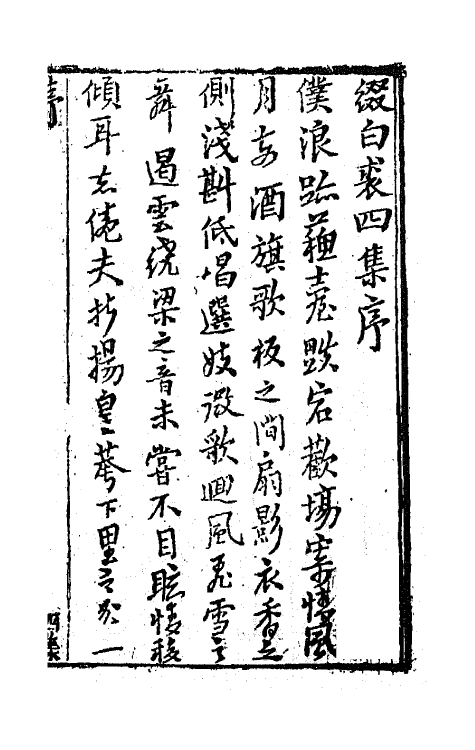 綴白裘四集序
僕浪跡蘓臺跌宕歡塲寄情風
月每酒旗歌板之間扇影衣香之
側淺斟低唱選妓徵歌迴風飛雪之
舞遏雲繞梁之音未嘗不目眩情移
傾耳忘倦夫抑揚皇荂下里之
序
四集
一